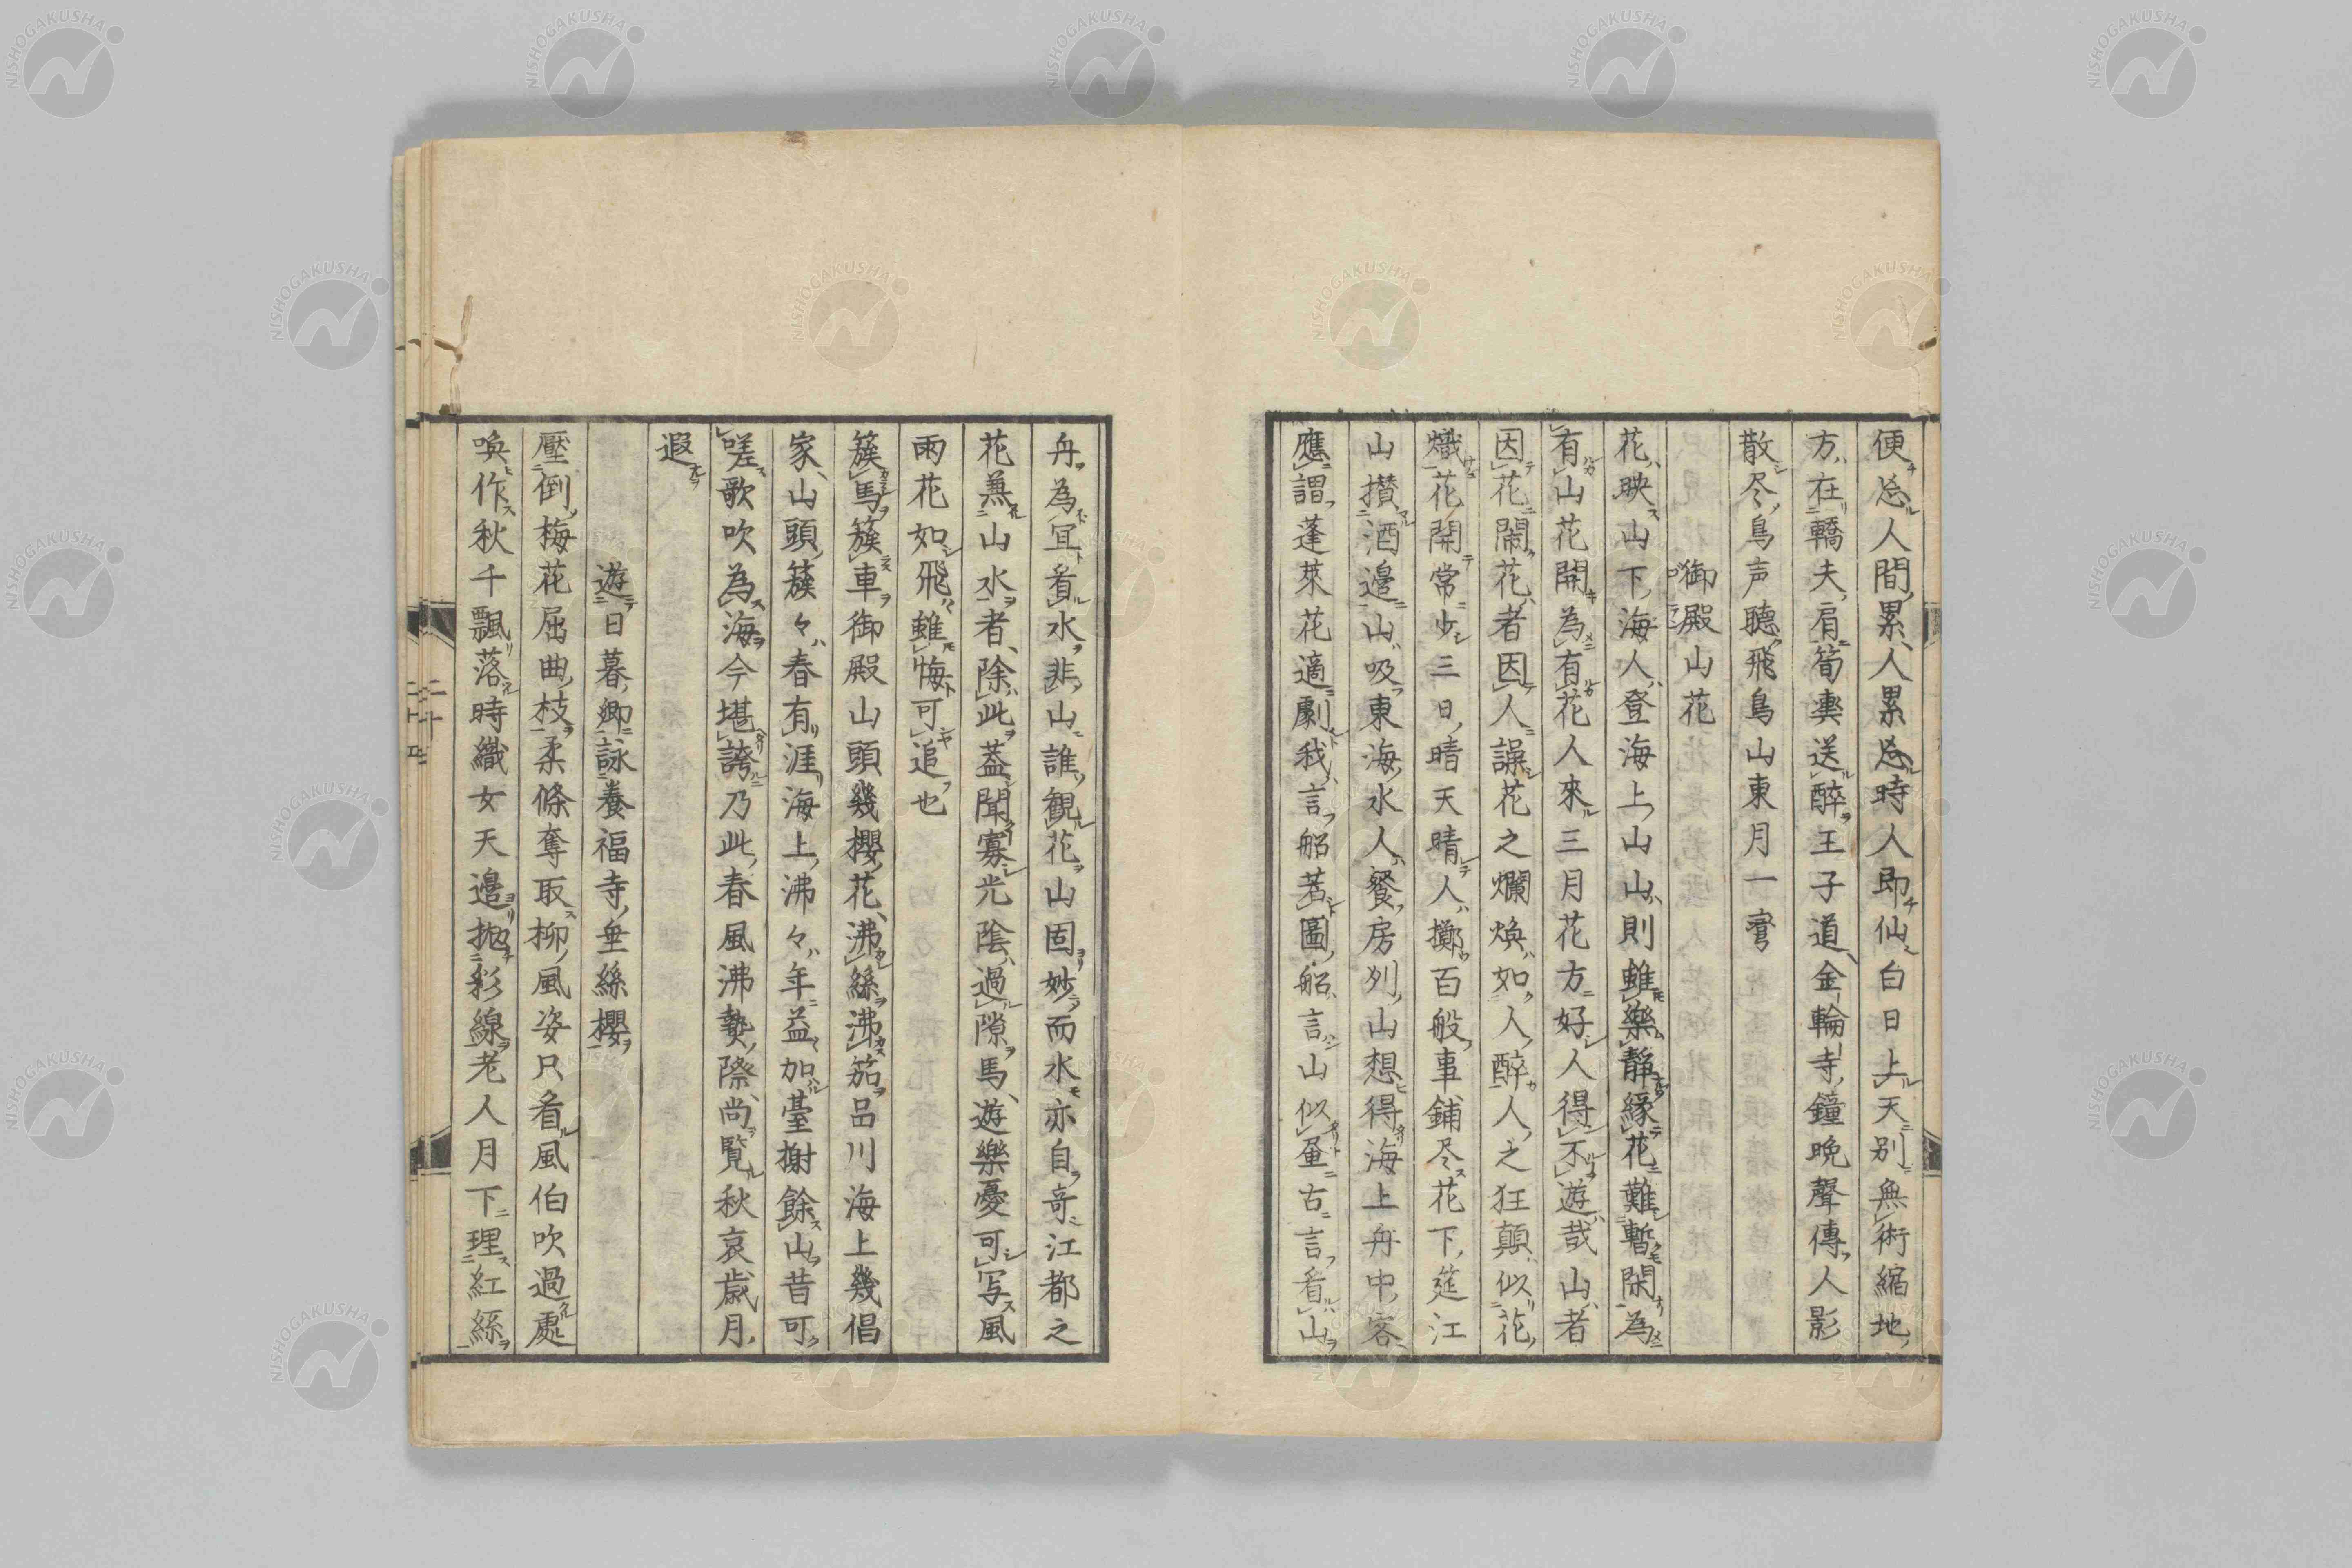 便忘人間累人累忘時人即仙白日上天別無術縮地
方在轎夫肩筍輿送醉王子道金輪寺鐘晩聲傳人影
散尽鳥声聴飛鳥山東月一彎
御殿山花
花映山下海人登海上山山則雖樂靜緣花難暫閑為
有山花開為有花人來三月花方好人得不遊哉山者
因花鬧花者因人譟花之爛煥如人醉人之狂顛似花
熾花開常少三日晴天晴人擲百般事鋪尽花下筵江
山攅酒邉山吸東海水人餐房列山想得海上舟中客
應謂蓬萊花適劇我言船若圖船言山似畫古言看山
舟為宜看水非山誰観花山固妙而水亦自奇江都之
花兼山水者除此蓋聞寡光陰過隙馬遊樂憂可写風
雨花如飛雖悔可追也
簇馬簇車御殿山頭幾櫻花沸絲沸笳品川海上幾倡
家山頭簇々春有涯海上沸々年益加臺榭餘山昔可
嗟歌吹為海今堪誇乃此春風沸熱際尚覧秋哀歳月
遐
遊日暮郷詠養福寺垂絲櫻
壓倒梅花屈曲枝柔條奪取柳風姿只看風伯吹過處
喚作秋千飄落時織女天邉抛彩線老人月下理紅絲
二十四
NISHOGAKUSHA